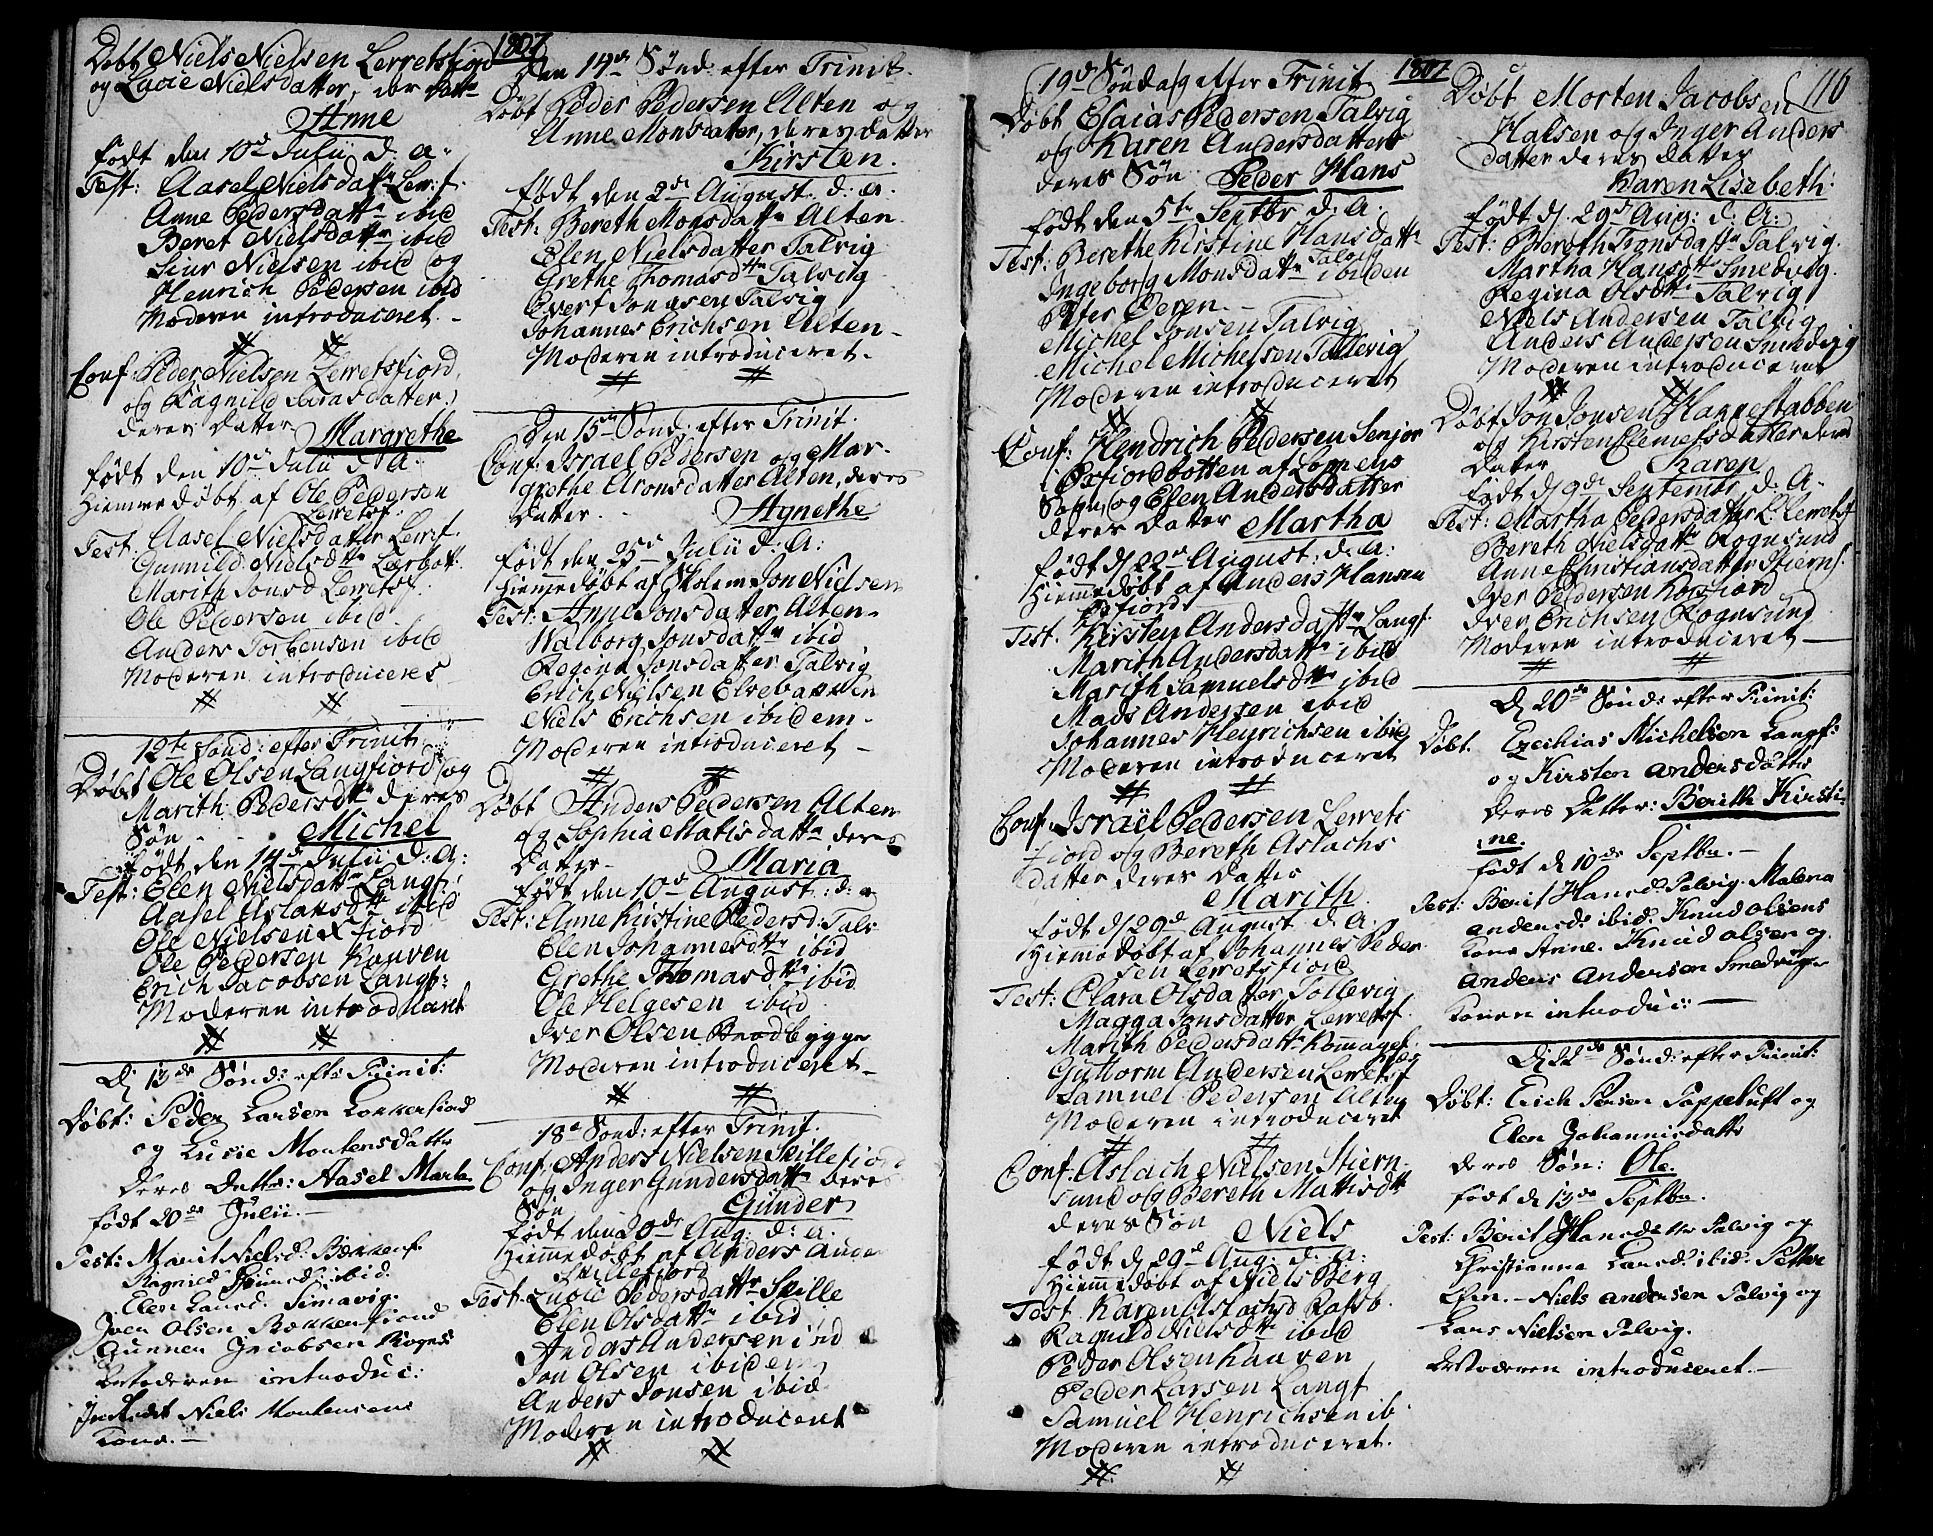 1807
Døbt Niels Nielsen Lerretsfiord
og Lucie Nielsdatter, der Datt
Anne
født den 10d Julii d. a.
Test: Aasel Nielsdatr Lerf.
Anne Pedersdattr ibid
Beret Nielsdattr ibid
Siur Nielsen ibid og
Henrich Pedersen ibid
Moderen introduceret.
Conf: Peder Nielsen Lerretsfiord,
og Ragnild datter
deres Datter Margrethe
født den 10d Julii d. A:
Hiemmedøbt af Ole Pedersen
Lerretsf.
Test. Aasel Nielsdatter Lerrf.
Gunnild Nielsdttr Lerbot:
Marith Jonsd Lerretsf.
Ole Pedersen ibid
Anders Torbensen ibid
Moderen introduceres
12te Sønd: efter Trinit:
Døbt Ole Olsen Langfiord og
Marith Pedersdttr deres
Søn Michel
født den 14d Julii d: A:
Test: Elen Nielsdattr Langf:
Aasel Aslaksdttr ibid
Ole Nielsen fiord
Ole Pedersen Kaaven
Erich Jacobsen Langf:
Moderen introduceret
Dj 13de Sønd: efter Trinit:
Døbt: Peder Larsen Lokkerfiord
og Lucie Mortensdatter
deres Datter: Aasel Marta.
født 20de Julii.
Test: Marit Nielsd: Bekkerf.
Ragnild ibid.
Elen Larsd. Simavig.
Iver Olsen Bekkerfiord
Gunner Jacobsen Rogns
Moderen introduc:
Niels Mortensens
Kone.
Den 14d Sønd: efter Trinit.
Døbt Peder Pedersen Alten og
Anne Monsdatter, deres datter
Kirsten.
født den 2de August d. a.
Test: Bereth Monsdattr Alten.
Elen Nielsdatter Talvig
Grethe Thomasdttr Talvig
Evert Jonasen Talvig
Johannes Erichsen Alten
Moderen introduceret.
Den 15d Sønd: efter Trinit:
Conf: Israel Pedersen og Mar-
grethe Aronsdatter Alten, deres
Datter. Agnethe
født den 25d Julii d: A:
Hiemmedøbt af Skolem Jon Nielsen
Test: Anne Jonsdatter Alten
Walborg Jonsdattr ibid
Regina Jonsdatter Talvig
Erich Nielsen Elvebakken
Niels Erichsen ibidem
Moderen introduceret
Døbt Anders Pedersen Alten
og Sophia Matisdattr deres
Datter Maria
født den 10d August: d: a
Test: Anne Kirstine Pedersd: Talv
Elen Johannesdttr ibid
Grethe Thomasdttr ibid
Ole Helgesen ibid
Iver Olsen Brodbygge
Moderen introduceret
18d Sønd: efter Trinit.
Conf: Anders Nielsen Skillefiord
og Inger Gundersdattr deres
Søn Günder
født den 20de Aug: d: a.
Hiemmedøbt af Anders Ander
Skillefiord
Test. Lucie Pedersdattr Skille
Elen Olsdattr ibid
Anders Andersen ibid
Jon Olsen ibidem
Anders Jonsen ibid
Moderen introduceret
1807
116
19d Søndag efter Trinit
Døbt Esaias Pedersen Talvig
og Karen Andersdatters
deres Søn Peder Hans
født den 5te Septbr d. A.
Test: Berethe Kirstine Hansdattr
Talvig
Ingeborg Monsdattr ibiden
Peter Beren
Michel Jonsen Talvig
Michel Michelsen Tallevig
Moderen introduceret
Conf: Hendrich Pedersen Senjor
i Øxfiordbotten af Loppens
Sogn, og Elen Andersdatter
deres Datter Martha
født dj 22d August: d: a:
Hiemmedøbt af Anders Hansen
Øxfiord
Test. Kirsten Andersdattr Langf.
Marith Andersdattr ibid
Marith Samuelsdttr ibid
Mads Andersen ibid
Johannes Henrichsen ibid
Moderen introduceret
Conf. Israel Pedersen Lerrets
fiord og Bereth Aslachs
datter deres Datter
Marith.
født dj 29d August d. A.
Hiemedøbt af Johannes Peder
sen Lerretsfiord
Test: Clara Olsdatter Tollevig
Magga Jonsdatter Lerretsf.
Marith Pedersdattr Komagf
Guttorm Andersen Lerretsf
Samuel Pedersen Alten
Moderen introduceret
Conf: Aslach Nielsen Stiern
sund og Bereth Mattisdttr
deres Søn Niels
født dj 29d Aug: d: a:
Hiemmedøbt af Niels Berg
Test. Karen Aslachsd Rafsb.
Ragnild Nielsdttr ibid
Peder Olsen Kaaven
Peder Larsen Langf
Samuel Henrichsen ib.
Moderen introduceret.
Døbt Morten Jacobsen
Halsen og Inger Anders
datter deres Datter
Karen Lisebeth:
født dj. 29d Aug: d: A:
Test: Bereth Tronsdattr Talvig.
Martha Hansdttr Smedvig.
Regina Olsdttr Talvig
Niels Andersen Talvig
Anders Andersen Smedvig
Moderen introduceret
Døbt Jon Jonsen Hannestabben
og Kirsten Clemetsdatter deres
Dater Karen
født dj 9de Septembr d. A.
Test: Martha Pedersdatter L. Lerretsf
Bereth Nielsdattr Rognsund
Anne Christiansdatter Stierns.
Iver Pedersen Korsfiord
Iver Erichsen Rognsund
Moderen introduceret
Dj 20de Sønd: efter Trinit:
Døbt. Ezechias Michelsen Langf:
og Kirsten Andersdatter
deres Datter: Berith Kirsti-
ne.
født d 10de Septbr.
Test: Berit Hansd. Talvig. Malena
Andersd: ibid: Knud Olsens
Kone Anne. Knud Olsen og
Anders Andersen Smedvig
Konen introduc:
Dj 22de Sønd: efter Trinit:
Døbt: Erich Persen Pappeluft og
Elen Johannisdatter
deres Søn: Ole.
født d 13de Septbr.
Test: Berit Hansdatter Talvig og
Christianna Larsd: ibid: Petter
Niels Andersen Talvig og
Lars Nielsen Talvig.
Moderen introduceret.